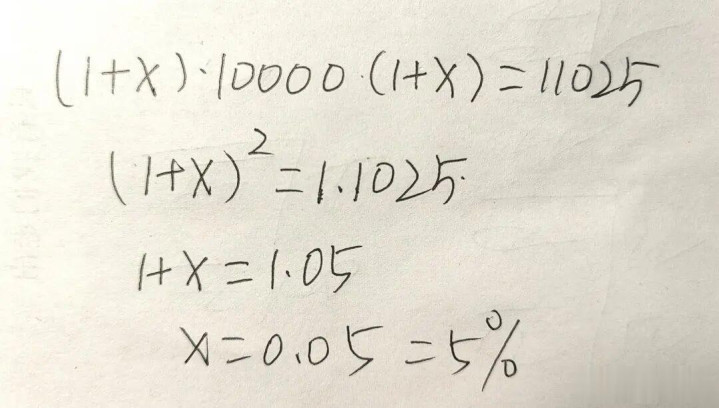 (1+x)·10000·(1+x)=11025
(1+x)²=1.1025
1+x=1.05
x=0.05=5%